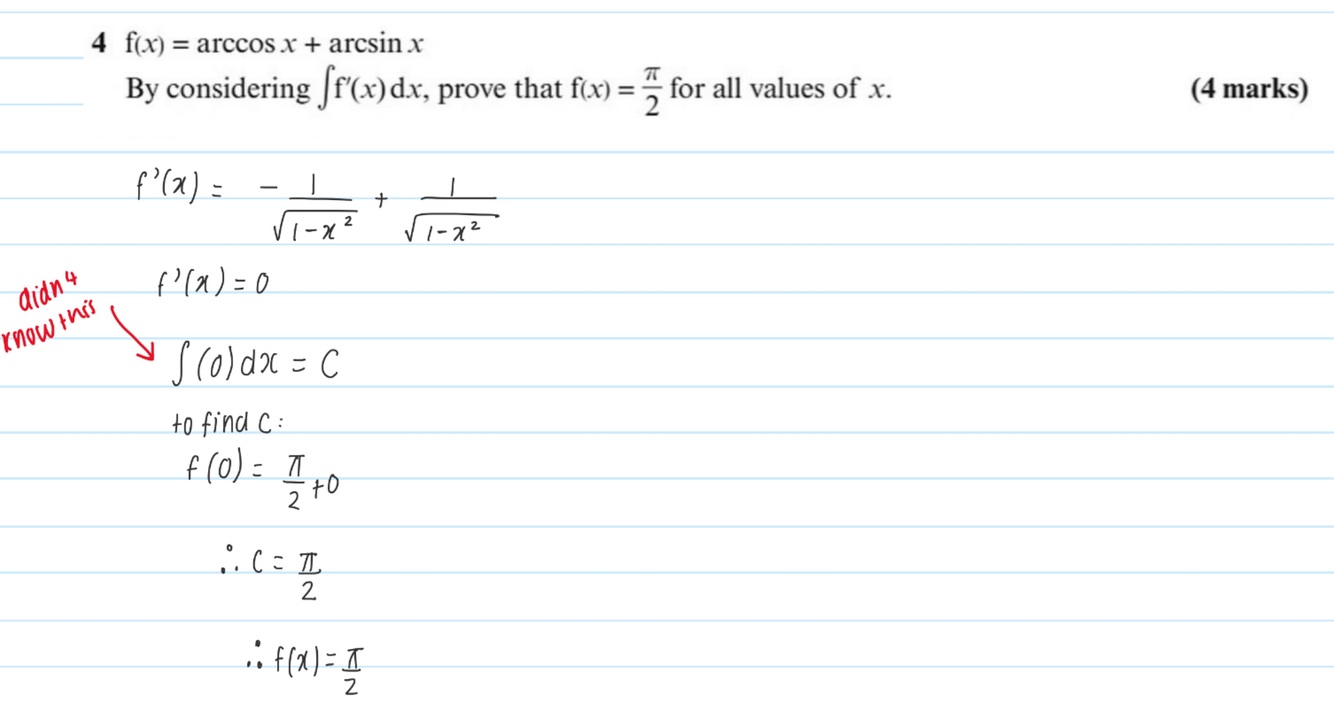 4 f(x) = arccos x + arcsin x
By considering ∫f′(x) dx, prove that f(x) = π/2 for all values of x. (4 marks)
f'(x) = - 1/√(1-x²) + 1/√(1-x²)
f'(x) = 0
didn4
know this
∫(0)dx = C
to find C:
f(0) = π/2 +0
∴ C = π/2
∴ f(x) = π/2